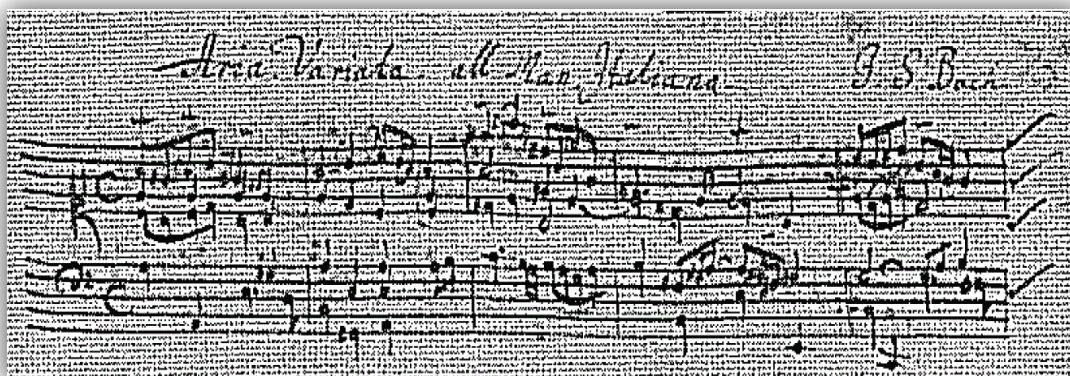 Aria Variata. all Man. Italiana. J. S. Bach.